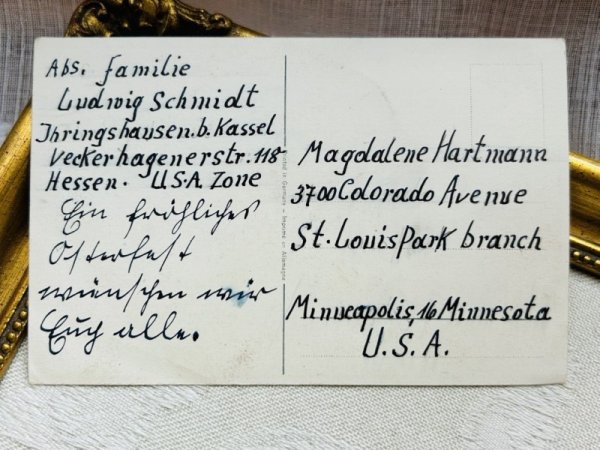 Abs. Familie
Ludwig Schmidt
Ihringshausen.b.Kassel
Veckerhagenerstr.118
Hessen. U.S.A. Zone
Ein fröhliches
Osterfest
wünschen wir
Euch alle.
Printed in Germany — Imprimé en Allemagne
Magdalene Hartmann
3700 Colorado Avenue
St. Louis Park branch
Minneapolis, 16 Minnesota
U.S.A.